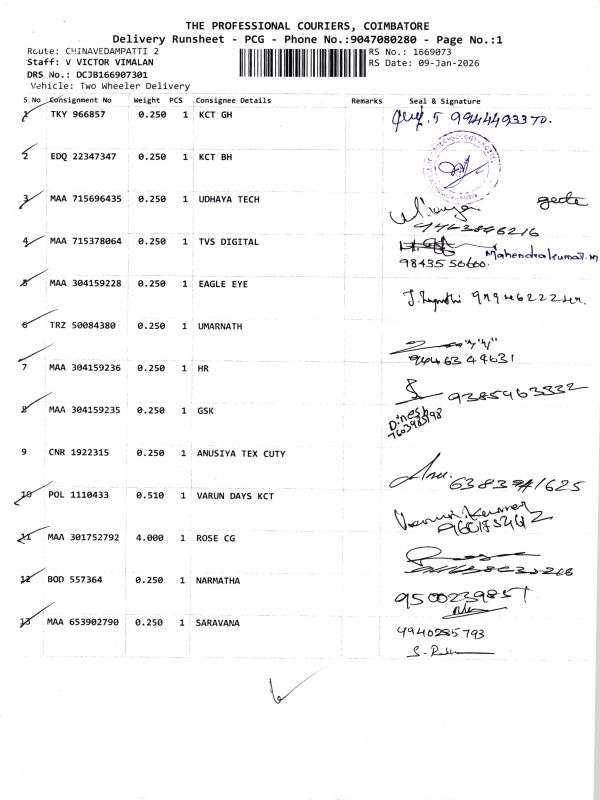 THE PROFESSIONAL COURIERS, COIMBATORE
Delivery Runsheet - PCG - Phone No.:9047080280 - Page No.:1
Route: CHINAVEDAMPATTI 2
RS No.: 1669073
Staff: V VICTOR VIMALAN
RS Date: 09-Jan-2026
DRS No.: DCJB166907301
Vehicle: Two Wheeler Delivery
S No Consignment No Weight PCS Consignee Details Remarks Seal & Signature
1 TKY 966857 0.250 1 KCT GH 9944493370.
2 EDQ 22347347 0.250 1 KCT BH
3 MAA 715696435 0.250 1 UDHAYA TECH
4 MAA 715378064 0.250 1 TVS DIGITAL Mahendrakumar.M
9843550600.
5 MAA 304159228 0.250 1 EAGLE EYE
6 TRZ 50084380 0.250 1 UMARNATH
7 MAA 304159236 0.250 1 HR 9385963332
8 MAA 304159235 0.250 1 GSK Dinesh
9 CNR 1922315 0.250 1 ANUSIYA TEX CUTY
10 POL 1110433 0.510 1 VARUN DAYS KCT
11 MAA 301752792 4.000 1 ROSE CG
12 BOD 557364 0.250 1 NARMATHA 9500239857
13 MAA 653902790 0.250 1 SARAVANA